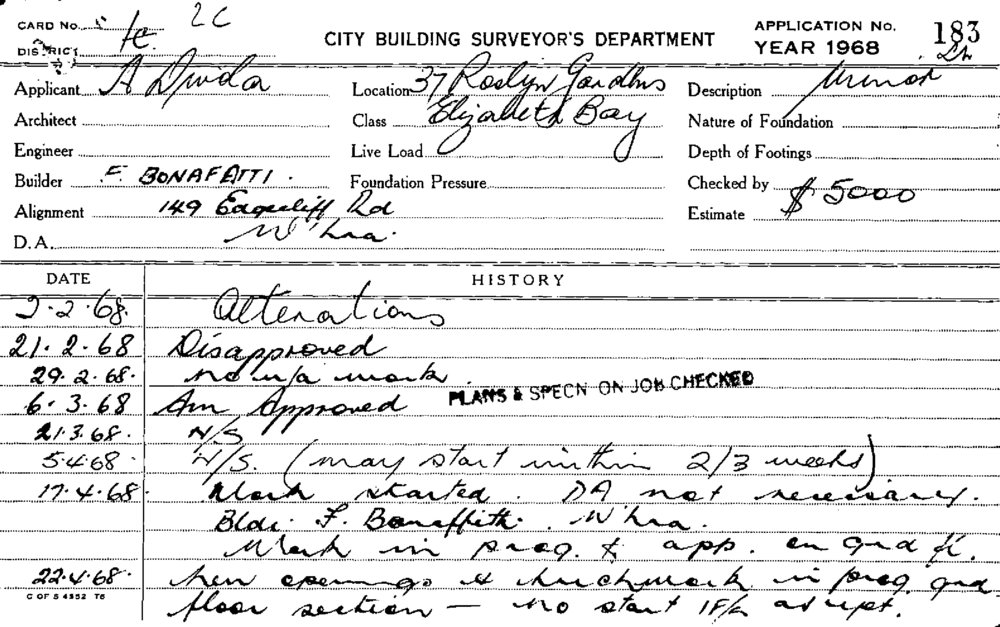 CARD No. 2C
DISTRICT
CITY BUILDING SURVEYOR'S DEPARTMENT
APPLICATION No. 183
YEAR 1968
Applicant A Divida
Location 37 Roslyn Gardens
Elizabeth Bay
Description Minor
Architect
Class
Nature of Foundation
Engineer
Live Load
Depth of Footings
Builder F. BONAFATTI.
Foundation Pressure
Checked by
Alignment 149 Edgecliff Rd
Estimate $ 5000
D.A. W'hra.
DATE HISTORY
2.2.68. Alterations
21.2.68 Disapproved
29.2.68. no u/a work.
PLANS & SPECN ON JOB CHECKED
6.3.68 Am Approved
21.3.68. N/S
5.4.68. N/S. (may start within 2/3 weeks)
17.4.68. Work started. DA not necessary.
Bldr. F. Bonaffitti. W'hra.
Work in prog. & app. on grd fl.
22.4.68. New openings & brickwork in prog grd
floor section — no start 1F/L as yet.
C OF S 4952 T6